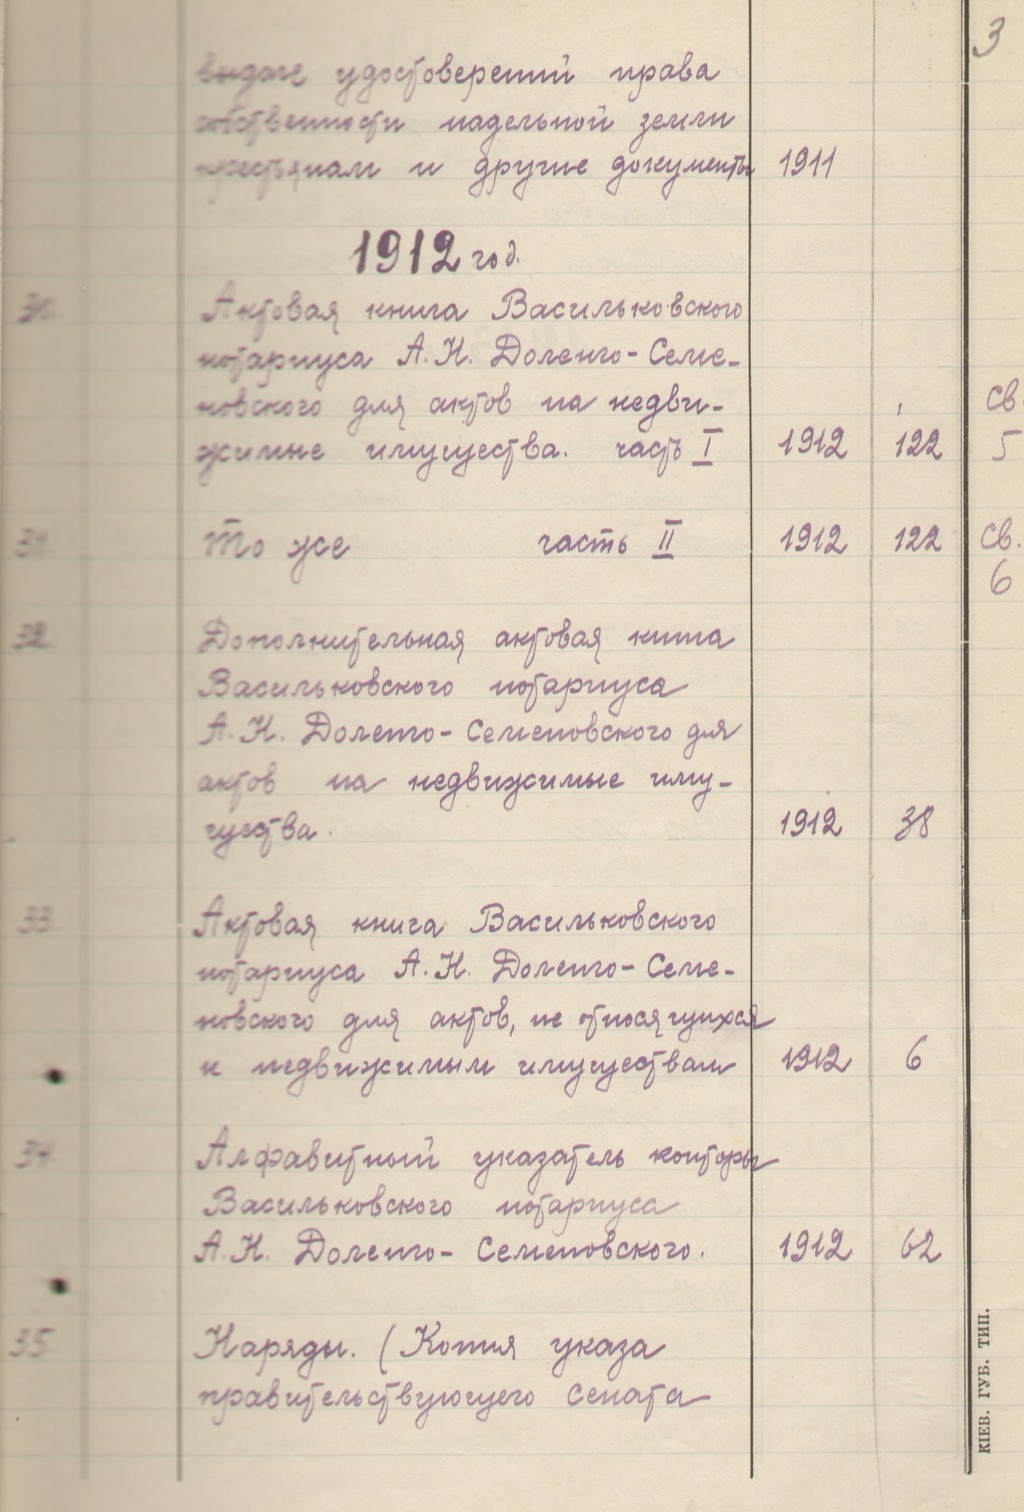 3
выдаче удостоверений права
собственности надельной земли
крестьянам и другие документы 1911
1912 год.
30. Актовая книга Васильковского
нотариуса А.Н. Доленго-Семе-
новского для актов на недви- св.
жимые имущества. часть I 1912 122 5
31. То же часть II 1912 122 св.
6
32 Дополнительная актовая книга
Васильковского нотариуса
А.Н. Доленго-Семеновского для
актов на недвижимые иму-
щества. 1912 38
33. Актовая книга Васильковского
нотариуса А.Н. Доленго-Семе-
новского для актов, не относящихся
к недвижимым имуществам 1912 6
34 Алфавитный указатель конторы
Васильковского нотариуса
А.Н. Доленго-Семеновского. 1912 62
35 Наряды. (Копия указа
правительствующего сената
КІЕВ. ГУБ. ТИП.